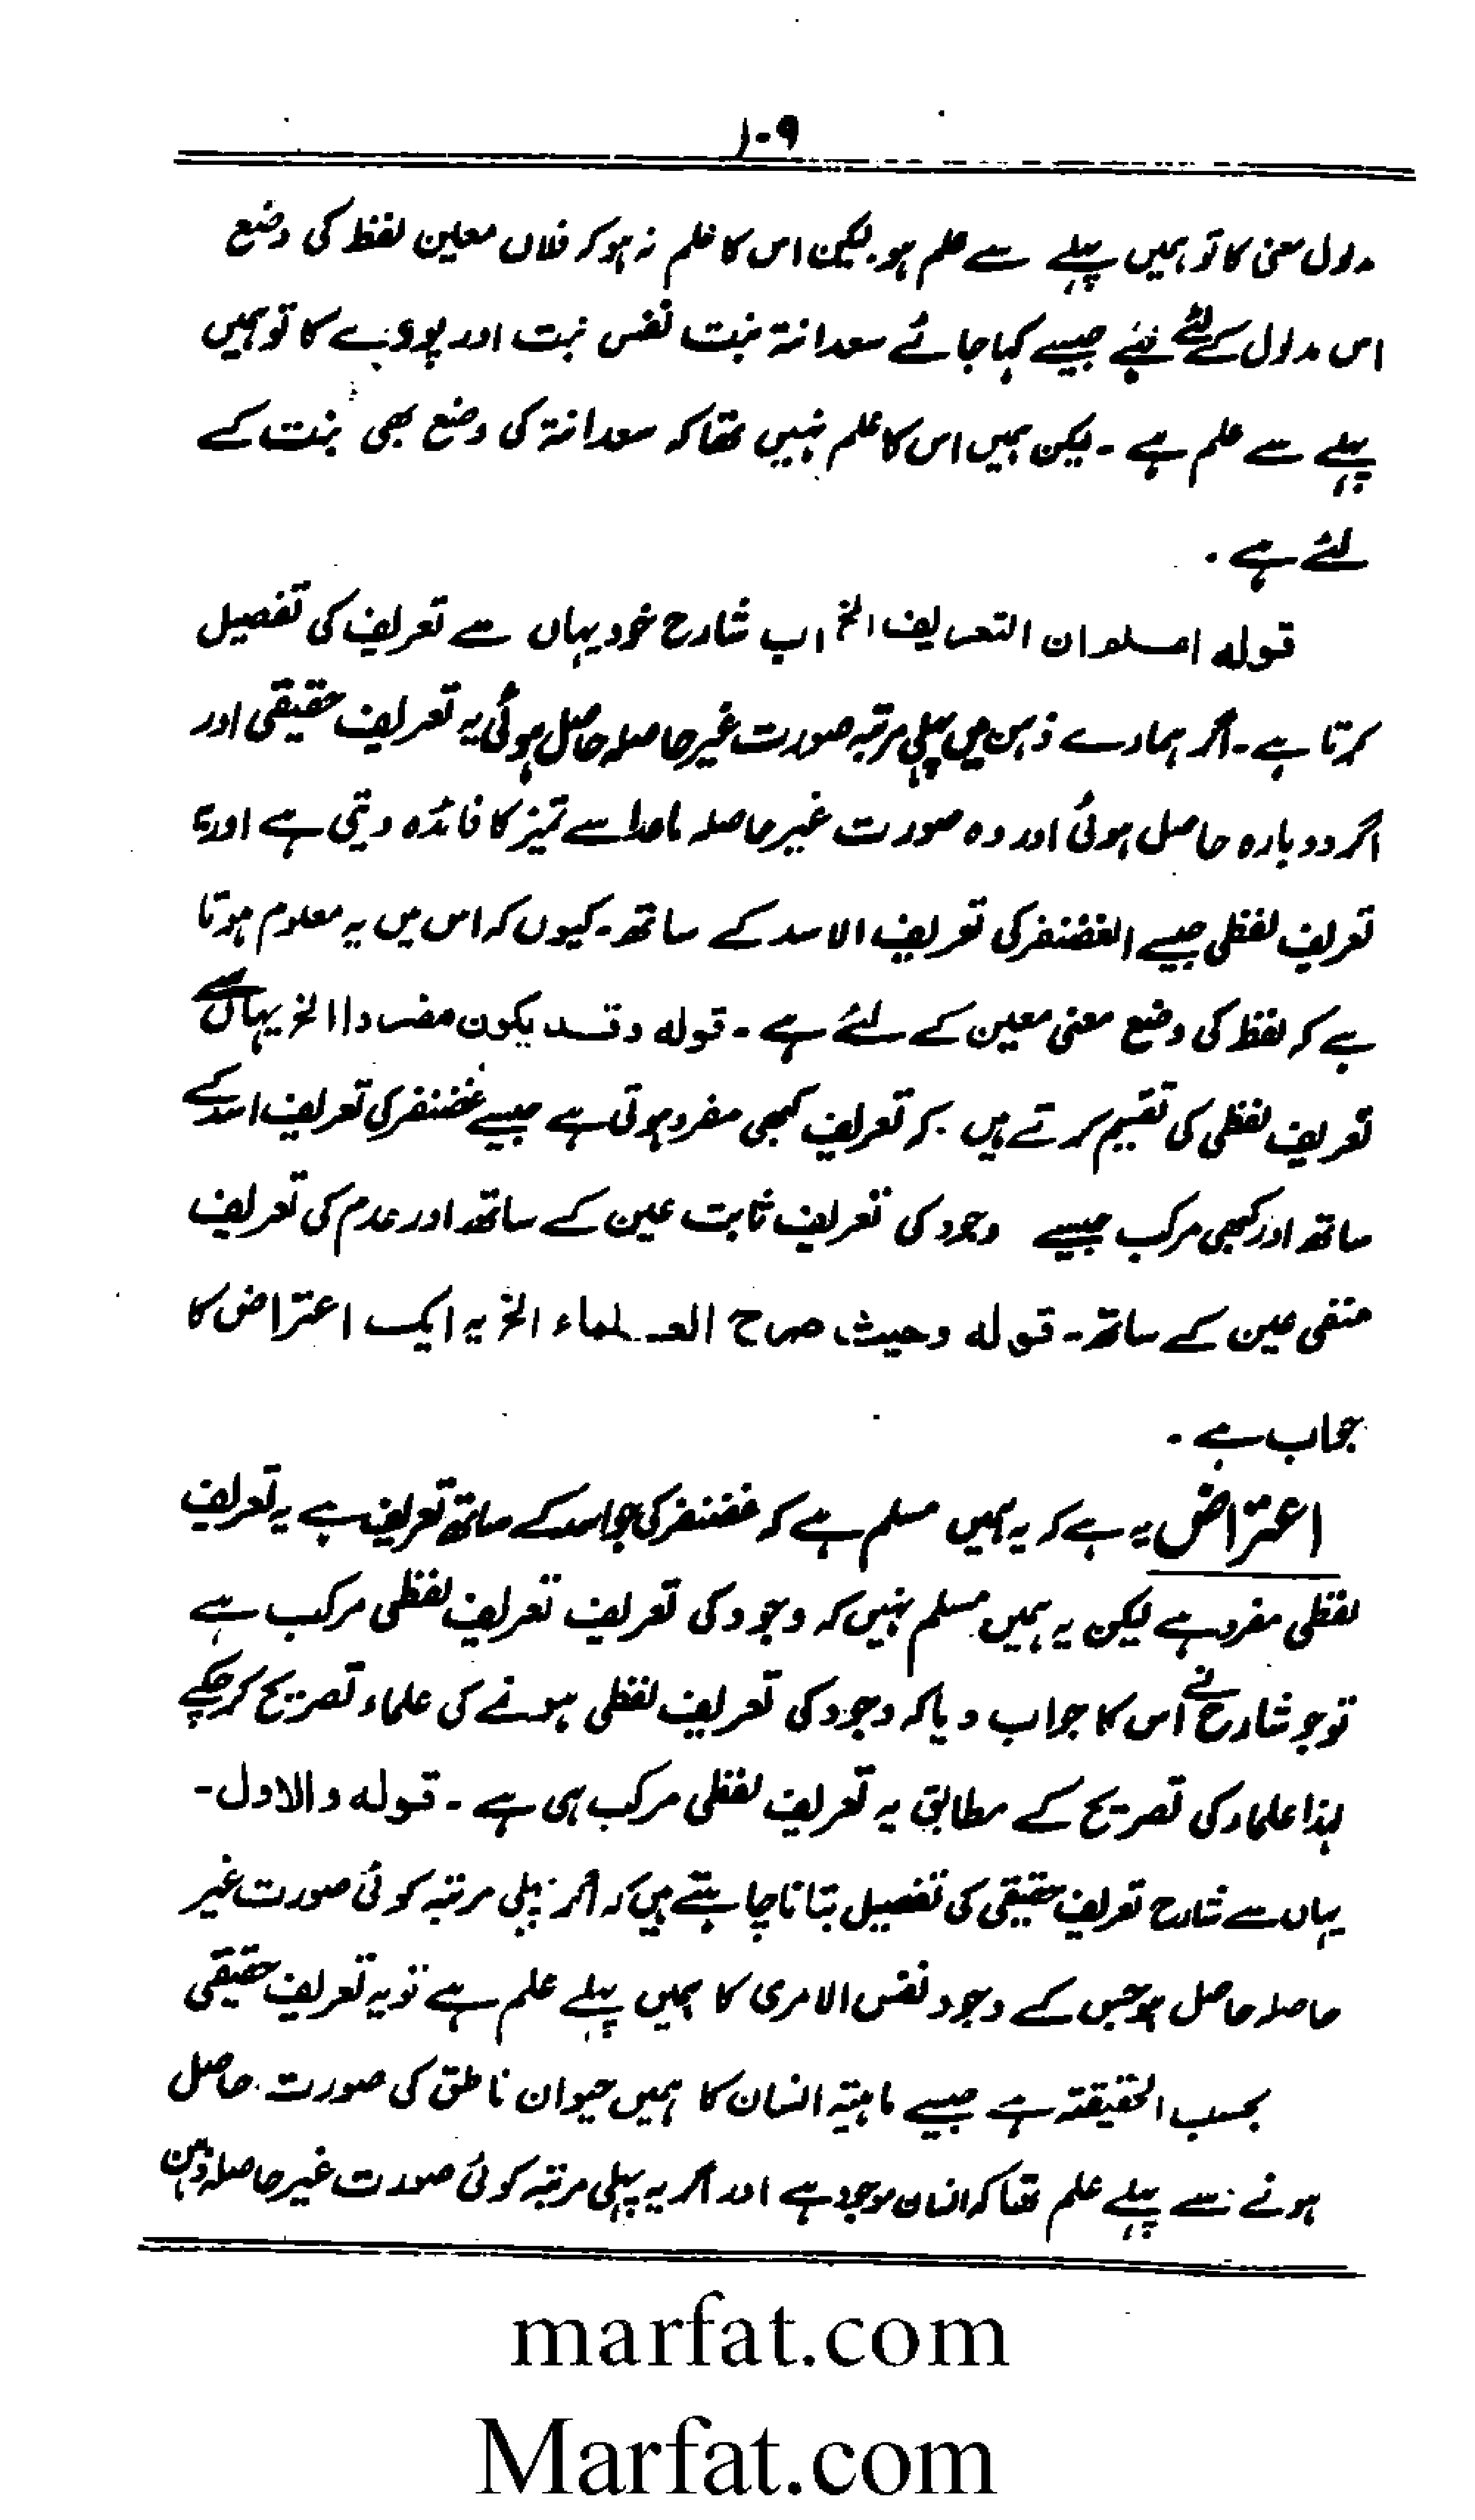 ۱۰۹
مدلول معنی کا تو ہمیں پہلے سے علم ہو۔ لیکن اس کا علم نہ ہو کہ فلاں معین لفظ کی وضع
اس مدلول کے لئے ہے جیسے کہا جائے سعدانۃ نبت نفس نبت اور پودے کا تو ہمیں
پہلے سے علم ہے ۔ لیکن ہمیں اس کا علم نہیں تھا کہ سعدانۃ کی وضع بھی نبت کے
لئے ہے ۔
قولہ اعلم ان التعریف الخ اب شارح خود یہاں سے تعریف کی تفصیل
کرتا ہے ۔ اگر ہمارے ذہن میں پہلی مرتبہ صورت غیر حاصلہ حاصل ہوگی یہ تعریف حقیقی اور
اگر دوبارہ حاصل ہوئی اور وہ صورت غیر حاصلہ ماعدا سے تمیز کا فائدہ دیتی ہے اور یہ
تعریف لفظی جیسے الغضنفر کی تعریف الاسد کے ساتھ ۔ کیوں کہ اس میں یہ معلوم ہوتا
ہے کہ لفظ کی وضع معنی معین کے لئے ہے ۔ قولہ وقد یکون مفردا الخ یہاں سے
تعریف لفظی کی تقسیم کرتے ہیں ۔ کہ تعریف کبھی مفرد ہوتی ہے جیسے غضنفر کی تعریف اسد کے
ساتھ اور کبھی مرکب جیسے وجود کی تعریف ثابت عین کے ساتھ اور عدم کی تعریف
منفی عین کے ساتھ ۔ قولہ وحیث صرح العلماء الخ یہ ایک اعتراض کا
جواب ہے ۔
اعتراض یہ ہے کہ یہ ہمیں مسلم ہے کہ غضنفر کی جو اسد کے ساتھ تعریف ہے یہ تعریف
لفظی مفرد ہے لیکن یہ ہمیں مسلم نہیں کہ وجود کی تعریف تعریف لفظی مرکب ہے
تو جو شارح نے اس کا جواب دیا کہ وجود کی تعریف لفظی ہونے کی علماء تصریح کر چکے
لہذا علماء کی تصریح کے مطابق یہ تعریف لفظی مرکب ہی ہے ۔ قولہ والاول ۔
یہاں سے شارح تعریف حقیقی کی تفصیل بتانا چاہتے ہیں کہ اگر پہلی مرتبہ کوئی صورت غیر
حاصلہ حاصل ہو جس کے وجود نفس الامری کا ہمیں پہلے علم ہے تو یہ تعریف حقیقی
بحسب الحقیقتہ ہے جیسے ماہیتہ انسان کا ہمیں حیوان ناطق کی صورت حاصل
ہونے سے پہلے علم تھا کہ انسان موجود ہے اور اگر یہ پہلی مرتبہ کوئی صورت غیر حاصلہ ذہن
marfat.com
Marfat.com